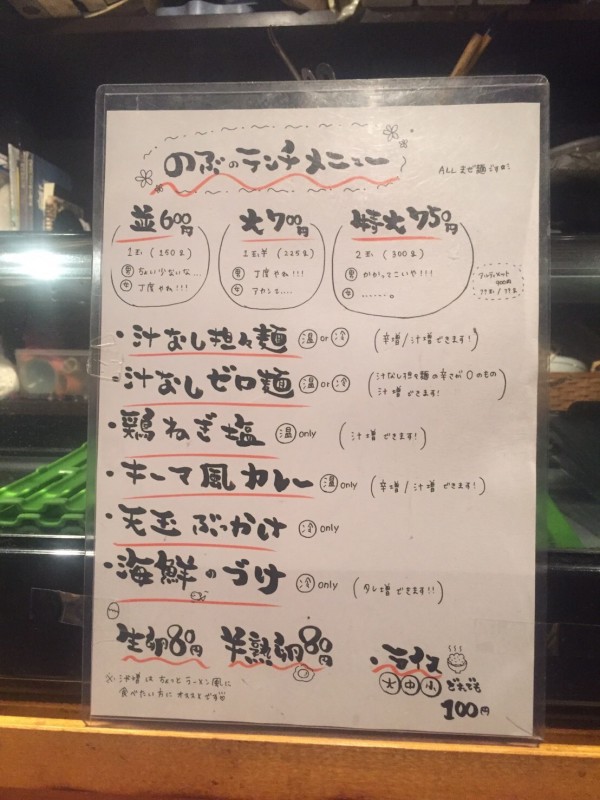 のぶのランチメニュー
ALL まぜ麺です
並600円
1玉 (150g)
男 ちょい少ないな...
女 丁度やね!!!
大700円
1玉半 (225g)
男 丁度やね!!!
女 アカンて...
特大750円
2玉 (300g)
男 かかってこいや!!!
女 ......。
アルティメット
・汁なし担々麺 温 or 冷 (辛増/汁増できます!)
・汁なしゼロ麺 温 or 冷 (汁なし担々麺の辛さが0のもの
汁増できます!)
・鶏ねぎ塩 温 only (汁増できます!)
・キーマ風カレー 温 only (辛増/汁増できます!)
・天玉ぶっかけ 冷 only
・海鮮のづけ 冷 only (タレ増できます!!)
生卵80円 半熟卵80円
・ライス
大 中 小 どれでも
100円
※汁増はちょっとラーメン風に
食べたい方にオススメです